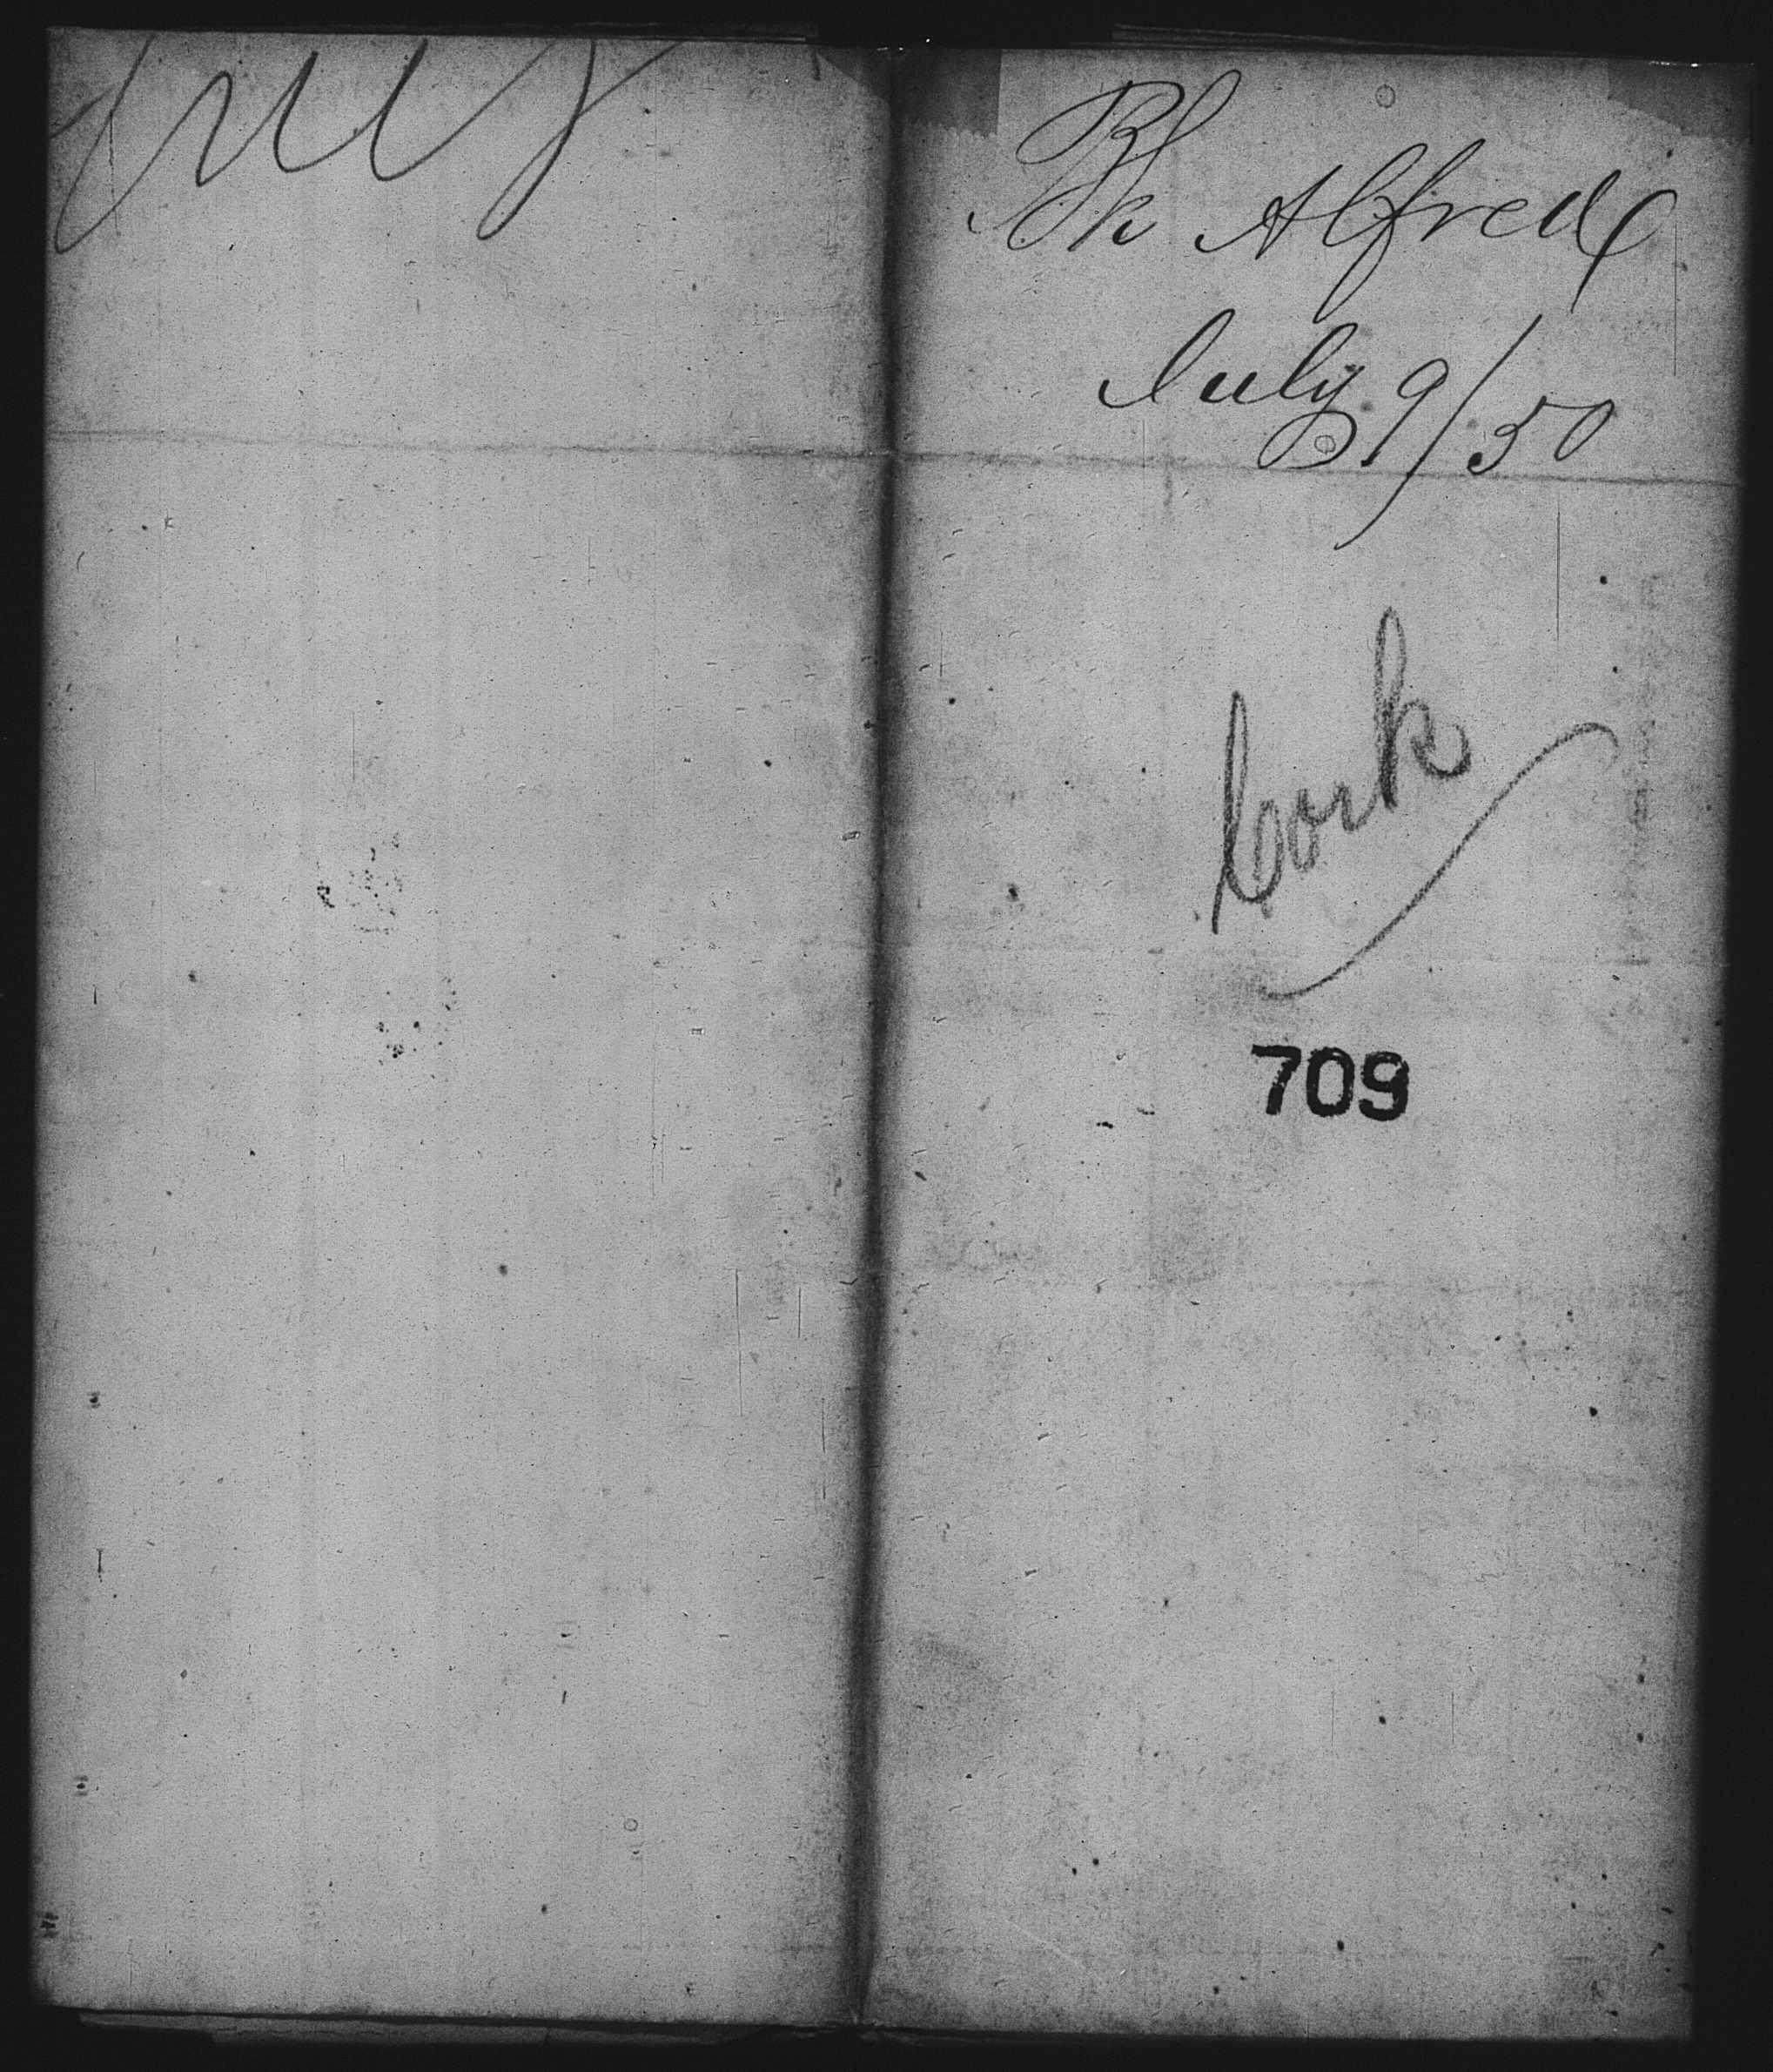 Bk Alfred
July 9/50
Cork
709